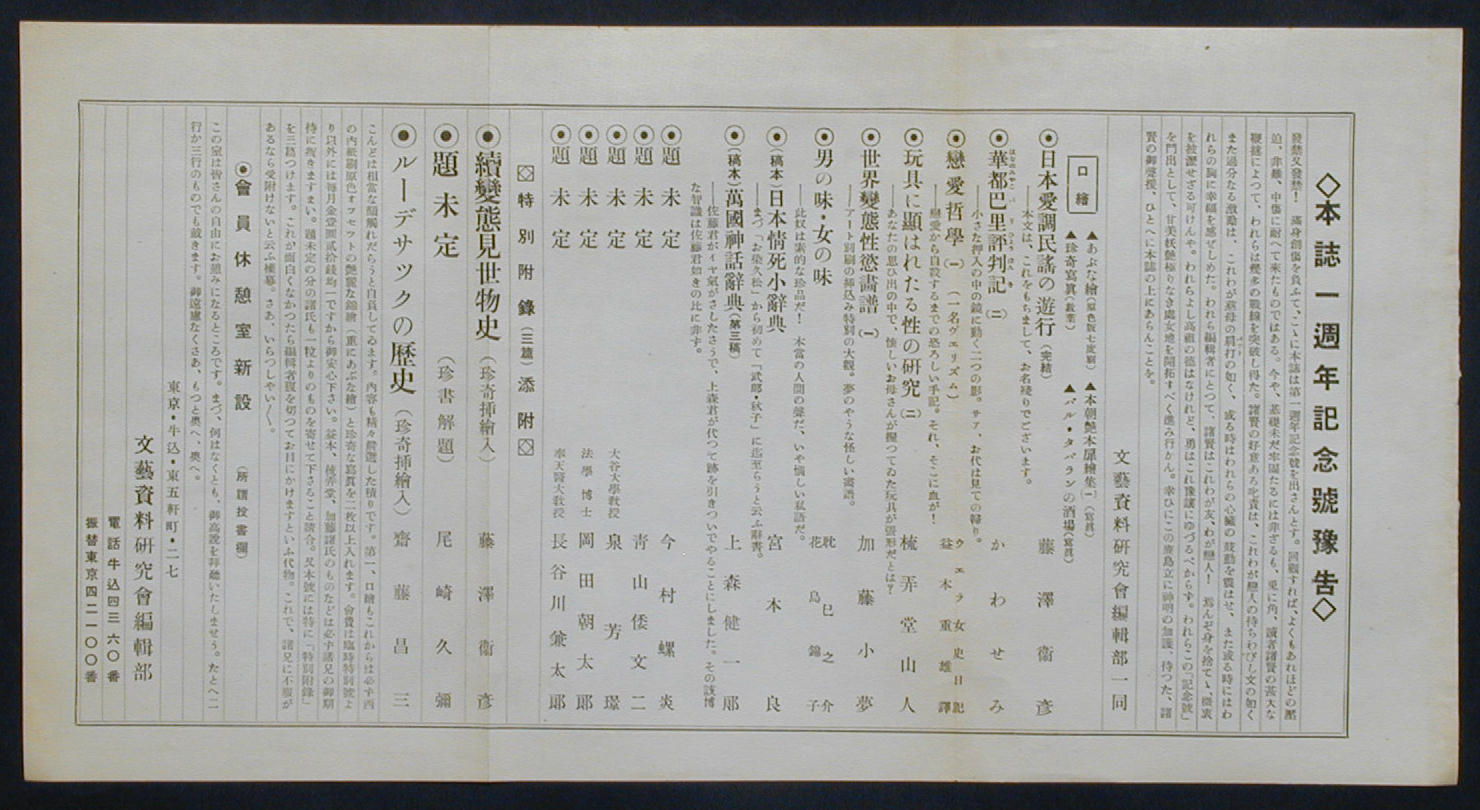 ◇本誌一週年記念號豫告◇
發禁又發禁! 滿身創傷を負ふて、こゝに本誌は第一週年記念號を出さんとす。回顧すれば、よくもあれほどの壓
迫、非難、中傷に耐へて來たものではある。今や、基礎未だ牢固たるには非ざるも、兎に角、讀者諸賢の甚大な
鞭撻によつて、われらは幾多の戰線を突破し得た。諸賢の好意ある叱責は、これわが戀人の待ちわびし文の如く
また過分なる激勵は、これわが慈母の肩打の如く、或る時はわれらの心臓の鼓動を震はせ、また或る時にはわ
れらの胸に幸福を感ぜしめた。われら編輯者にとつて、諸賢はこれわが友、わが戀人! 焉んぞ身を捨てゝ、微衷
を披瀝せざる可けんや。われらよし高祖の德はなけれど、勇はこれ豫讓にゆづるべからず。われらこの「記念號」
を門出として、甘美妖艶極りなき處女地を開拓すべく進み行かん。幸ひにこの鹿島立に神明の加護、待つた、諸
賢の御聲援、ひとへに本誌の上にあらんことを。
文藝資料研究會編輯部一同
口繪
▲あぶな繪(原色版七度刷) ▲本朝艶本扉繪集(一)(寫眞)
▲珍奇寫眞(數葉) ▲バル・タバランの酒場(寫眞)
◉日本愛調民謠の遊行(完結) 藤澤衞彥
――本文は、これをもちまして、お名殘りでございます。
◉華都巴里評判記(二) かわせみ
――小さな押入の中の鏡に動く二つの影。サア、お代は見ての歸り。
◉戀愛哲學(一)(一名ヴエリズム) ウエラ女史日記
益本重雄譯
――戀愛から自殺するまでの恐ろしい手記。それ、そこに血が!
◉玩具に顯はれたる性の硏究(二) 梳弄堂山人
――あなたの思ひ出の中で、懷しいお母さんが握つてゐた玩具が張形だとは?
◉世界變態性慾畵譜(一) 加藤小夢
――アート別刷の揷込み特別の大觀。夢のやうな怪しい畵譜。
◉男の味・女の味 耽巳之介
花島錦子
――此奴は素的な珍品だ! 本當の人間の聲だ、いや惱しい私語だ。
◉(稿本)日本情死小辭典 宮本良
――まづ「お染久松」から初めて「武郎・秋子」に迄至らうと云ふ辭書。
◉(稿本)萬國神話辭典(第三稿) 上森健一郞
――佐藤君がイヤ氣がさしたさうで、上森君が代つて跡を引きついでやることにしました。その該博
な智識は佐藤君如きの比に非ず。
◉題未定 今村螺炎
◉題未定 靑山倭文二
◉題未定 大谷大學敎授 泉芳璟
◉題未定 法學博士 岡田朝太郞
◉題未定 奉天醫大敎授 長谷川兼太郞
◇特別附錄(三篇)添附◇
◉續變態見世物史(珍奇揷繪入) 藤澤衞彥
◉題未定(珍書解題) 尾崎久彌
◉ルーデサツクの歷史(珍奇揷繪入) 齋藤昌三
こんどは相當な顏觸れだらうと自負してゐます。内容も精々精選した積りです。第一、口繪もこれからは必ず西
の内紙刷原色オフセツトの艶麗な錦繪(重にあぶな繪)と珍奇な寫眞を二枚以上入れます。會費は臨時特別號よ
り以外には每月金壹圓貳拾錢均一ですから御安心下さい。益本、梳弄堂、加藤諸氏のものなどは必ず諸兄の御期
待に背きますまい。題未定の分の諸氏も一粒よりのものを寄せて下さること請合。又本號には特に「特別附錄」
を三篇つけます。これが面白くなかつたら編輯者腹を切つてお目にかけますといふ代物。これで、諸兄に不服が
あるなら受附けないと云ふ權幕。さあ、いらつしやい〱。
◉會員休憩室新設(所謂投書欄)
この室は皆さんの自由にお憩みになるところです。まづ、何はなくとも、御高說を拜聽いたしませう。たとへ二
行か三行のものでも戴きます。御遠慮なくさあ、もつと奧へ、奧へ。
東京・牛込・東五軒町・二七
文藝資料硏究會編輯部
電話牛込四三六〇番
振替東京四二一〇〇番